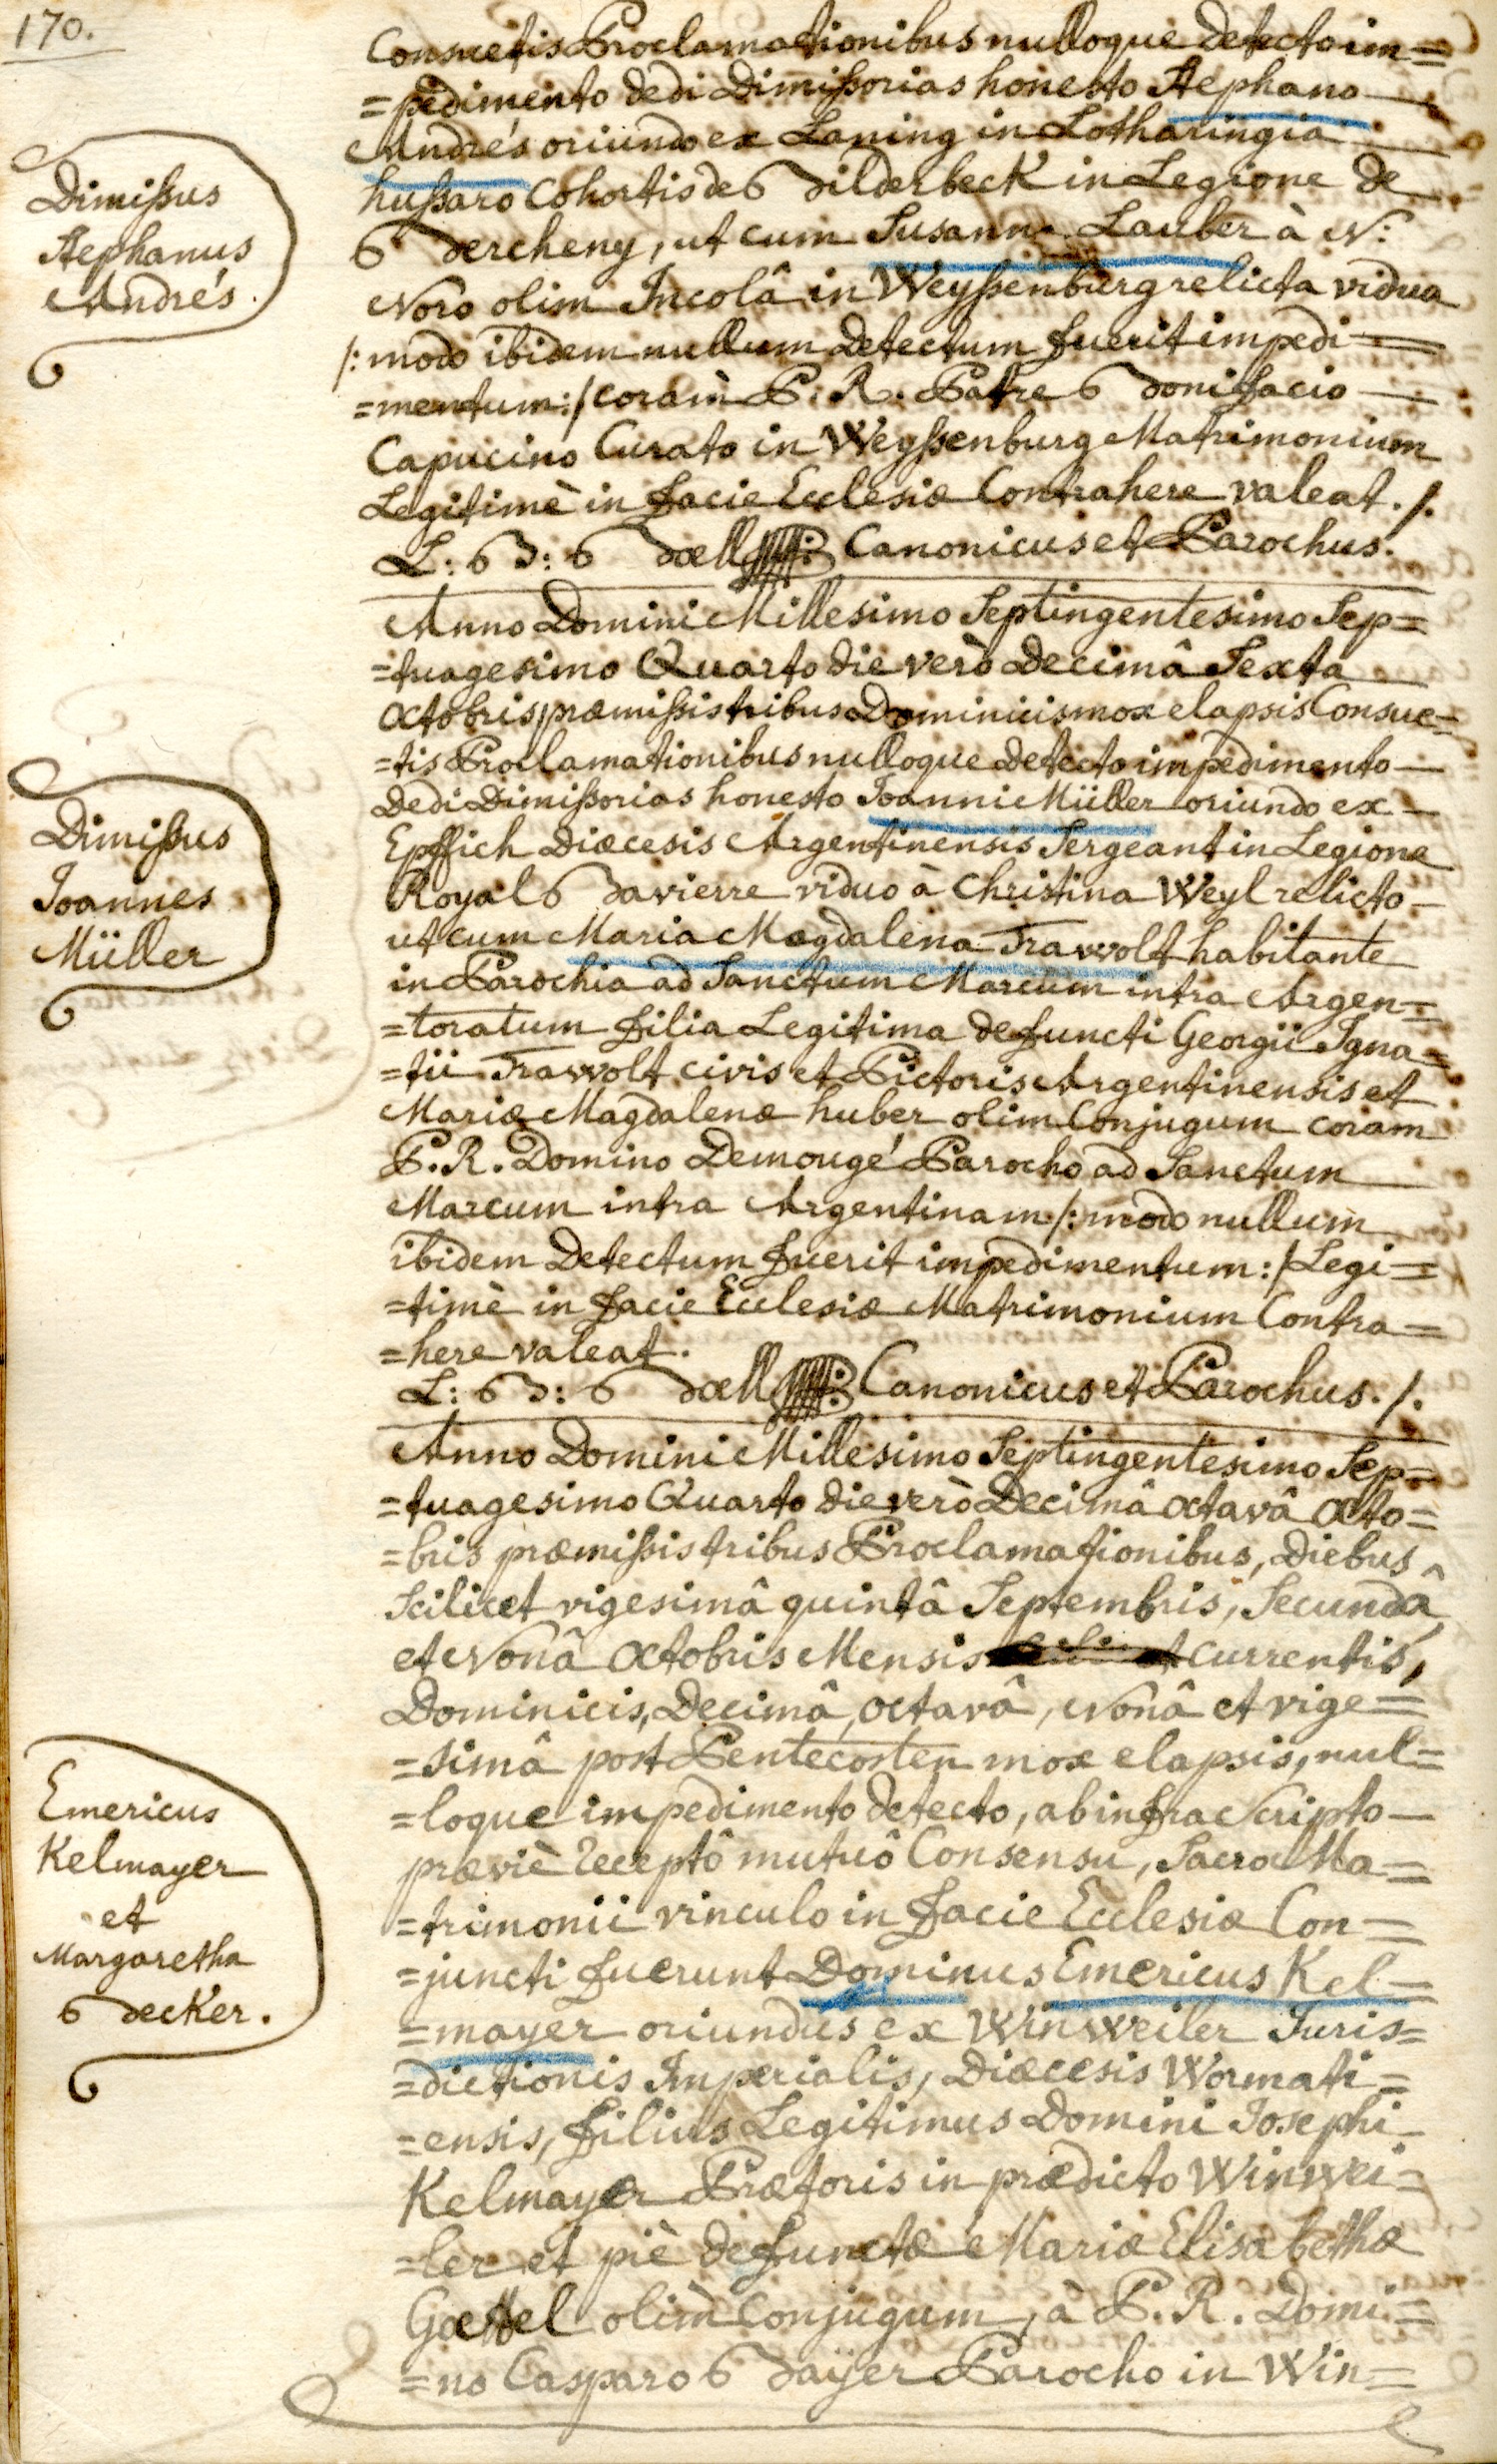 170.
Consuetis Proclamationibus nulloque detecto im=
=pedimento dedi Dimissorias honesto Stephano
Andrés oriundo ex Laning in Lotharingia
hussaro Cohortis de Bilderbeck in Legione de
Bercheny, ut cum Susanna Lauber à N:
Noro olim Incolâ in Weyssenburg relicta vidua
/: modo ibidem nullum detectum fuerit impedi=
=mentum :/ coram P. R. Patre Bonifacio
Capucino Curato in Weyssenburg Matrimonium
Legitimè in facie Ecclesiæ Contrahere valeat ./.
L: B: Bœll Canonicus et Parochus.
Dimissus
Stephanus
Andrés.
Anno Domini Millesimo Septingentesimo Sep=
=tuagesimo Quarto die verò Decimâ Sexta
Octobris præmissis tribus Dominicis mox elapsis Consue=
=tis Proclamationibus nulloque detecto impedimento
dedi Dimissorias honesto Joanni Müller oriundo ex
Epffich Diœcesis Argentinensis Sergeant in Legione
Royal Bavierre viduo à Christina Weyl relicto
ut cum Maria Magdalena Trawolt habitante
in Parochia ad Sanctum Marcum intra Argen=
=toratum filia Legitima defuncti Georgii Igna=
=tii Trawolt civis et Pictoris Argentinensis et
Mariæ Magdalenæ huber olim Conjugum coram
P. R. Domino Demougé Parocho ad Sanctum
Marcum intra Argentinam /: modo nullum
ibidem Detectum fuerit impedimentum :/ Legi=
=timè in facie Ecclesiæ Matrimonium Contra=
=here valeat.
L: B: Bœll Canonicus et Parochus ./.
Dimissus
Joannes
Müller
Anno Domini Millesimo Septingentesimo Sep=
=tuagesimo Quarto die verò Decimâ octavâ Octo=
=bris præmissis tribus Proclamationibus, Diebus
Scilicet vigesimâ quintâ Septembris, Secundâ
et Nonâ Octobris Mensis currentis,
Dominicis, Decimâ, octavâ, Nonâ et vige=
=simâ post Pentecosten mox elapsis, nul=
=loque impedimento detecto, ab infra Scripto
præviè Ecceptô mutuô Consensu, Sacro Ma=
=trimonii vinculo in facie Ecclesiæ Con=
=juncti fuerunt Dominus Emericus Kel=
=mayer oriundus ex Winweiler Juris=
=dictionis Imperialis, Diœcesis Wormati=
=ensis, filius Legitimus Domini Josephi
Kelmayer Prætoris in prædicto Winwei=
=ler et piè defunctæ Mariæ Elisabethæ
Gœttel olim Conjugum, à P. R. Domi=
=no Casparo Baÿer Parocho in Win=
Emericus
Kelmayer
et
Margaretha
Becker.